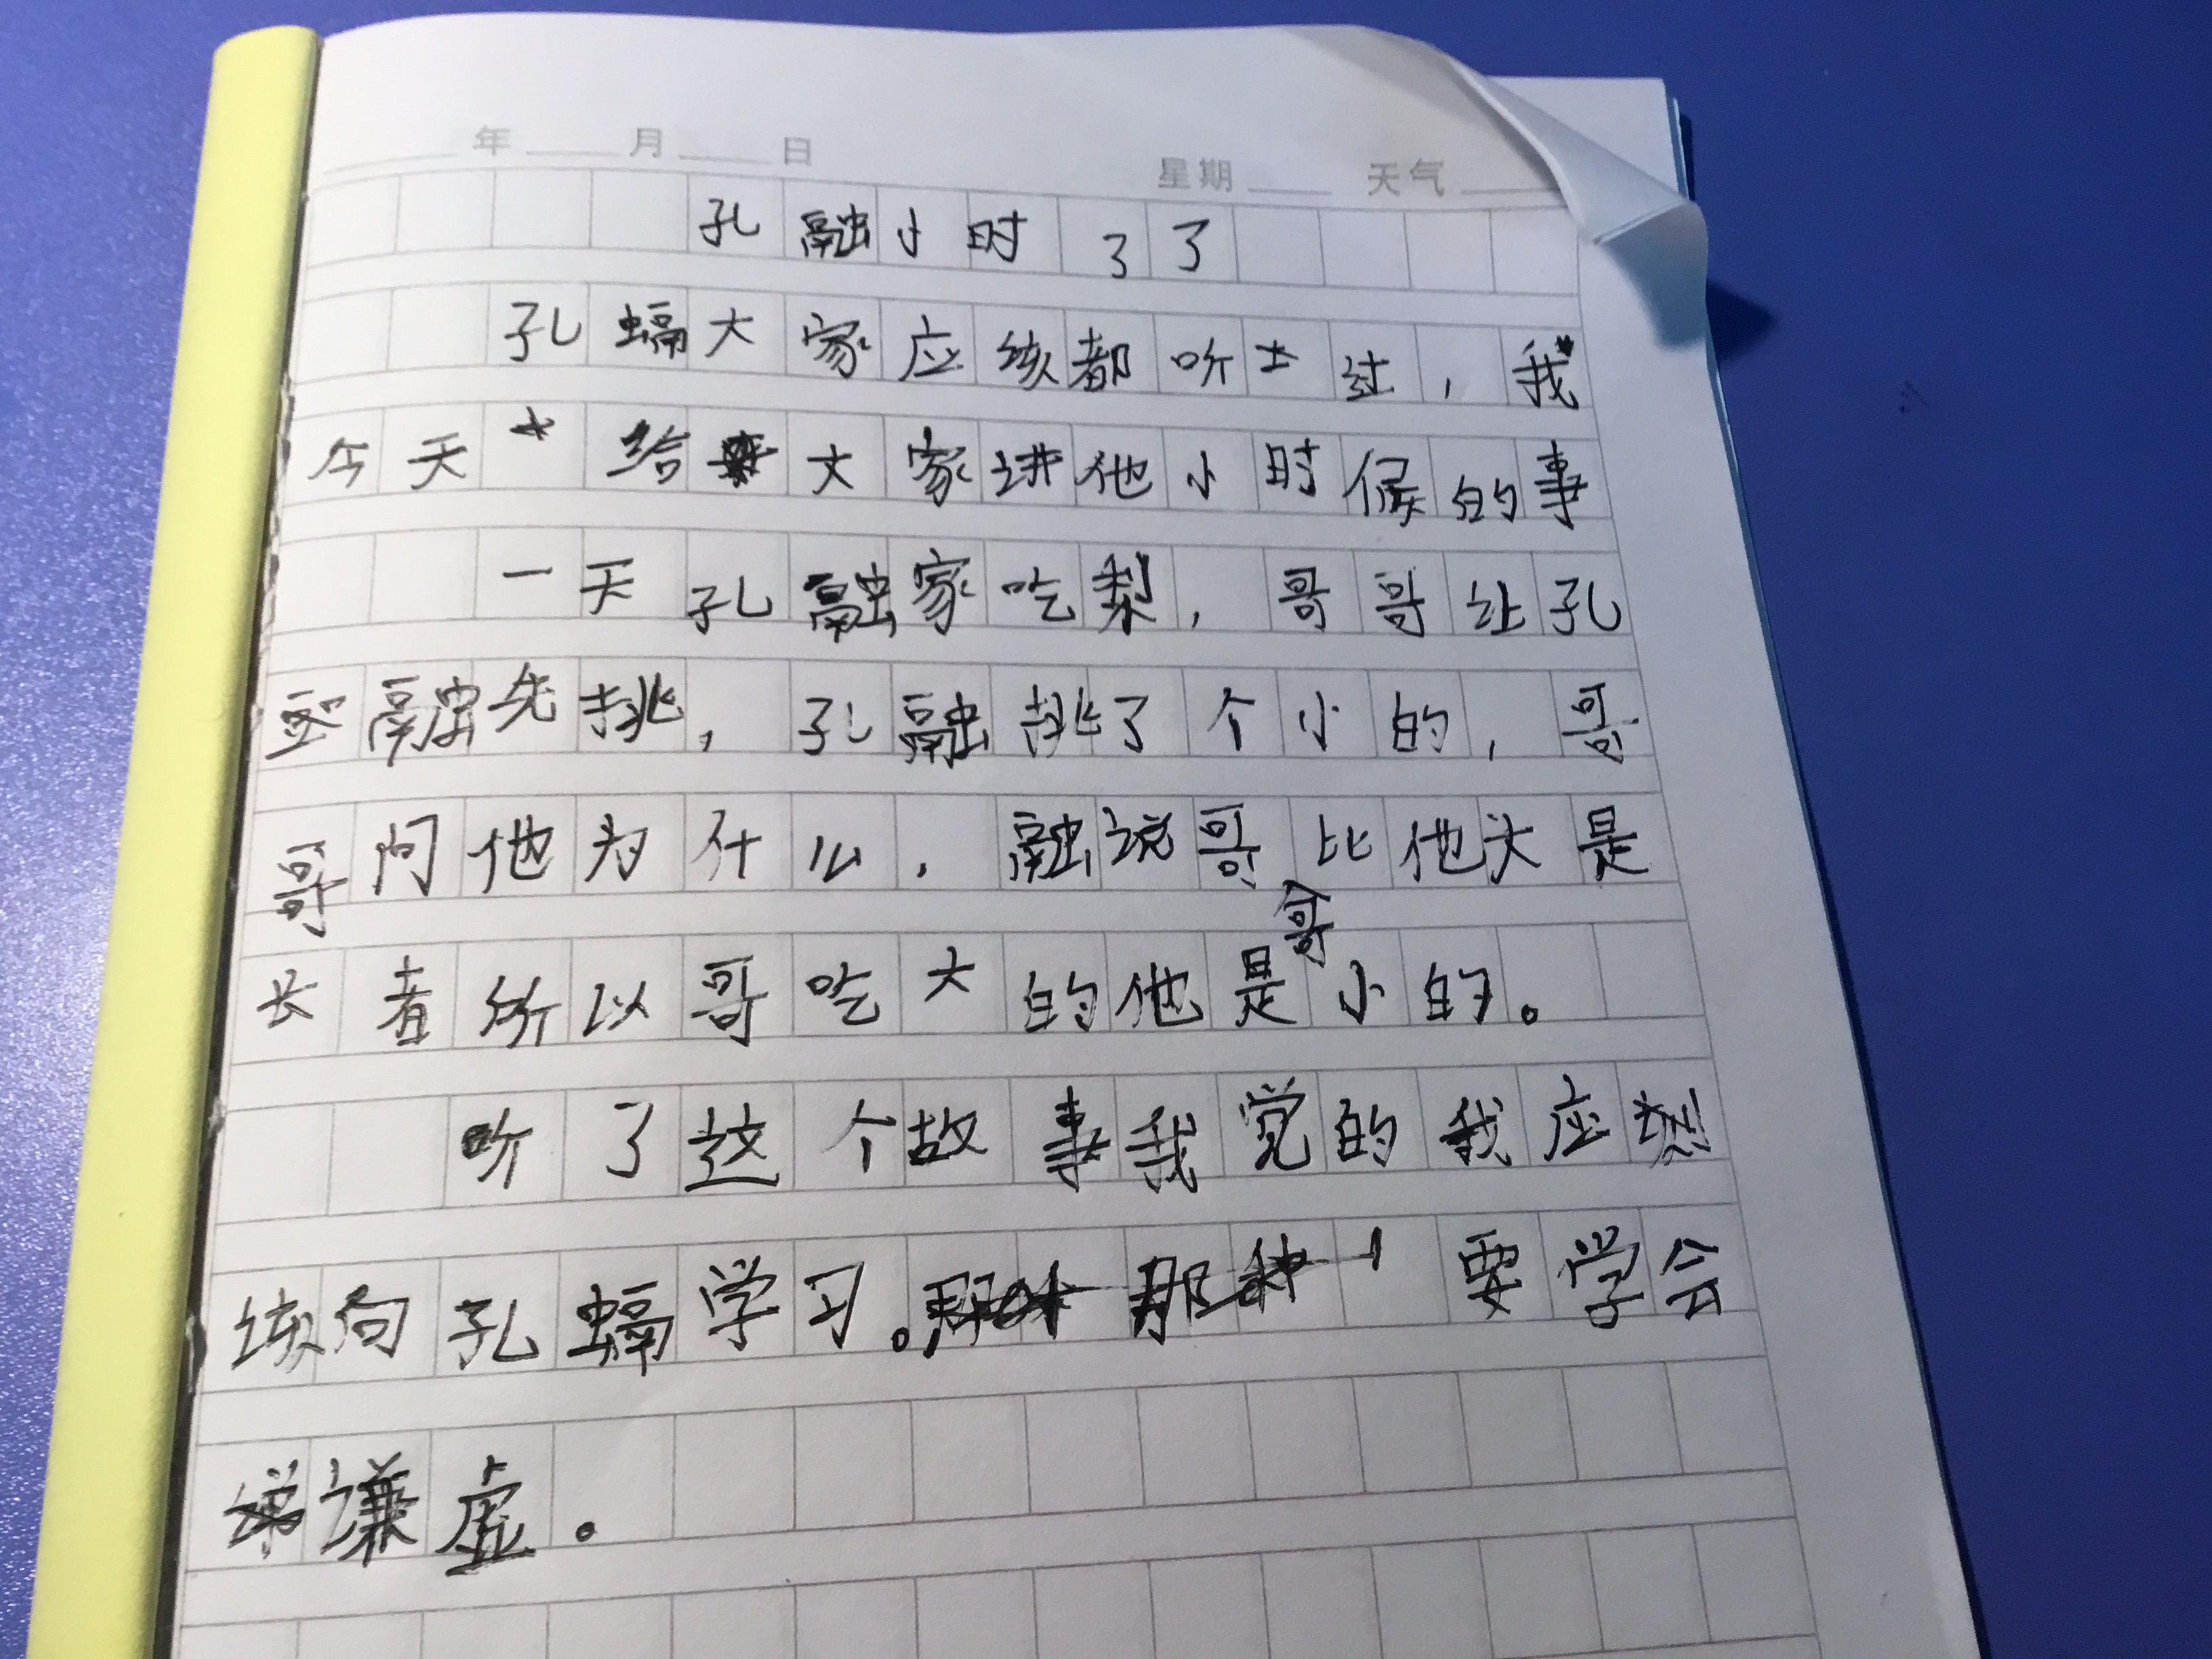 年 月 日 星期 天气
孔融小时了了
孔融大家应该都听过，我
今天给大家讲他小时候的事
一天孔融家吃梨，哥哥让孔
融先挑，孔融挑了个小的，哥
哥问他为什么，融说哥比他大是
长者所以哥吃大的他是哥小的。
听了这个故事我觉的我应
该向孔融学习。要学会
谦虚。